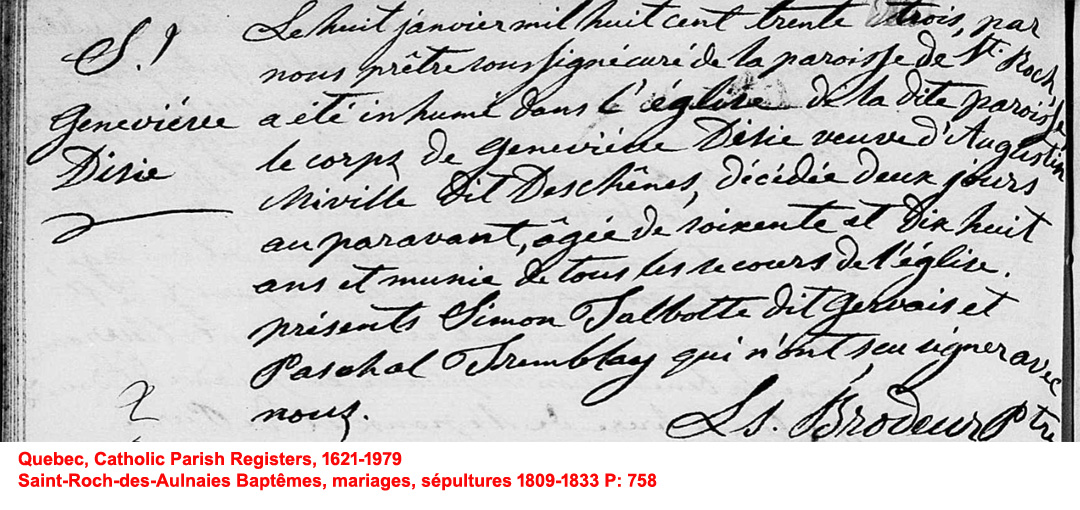 S.
Geneviéve
Disie
Le huit janvier mil huit cent trente et trois, par
nous prêtre soussigné curé de la paroisse de St. Roch,
a été inhumé dans l'église de la dite paroisse
le corps de Geneviéve Disie veuve d'Augustin
Miville dit Deschênes, décédée deux jours
au paravant, âgée de soixente et dix huit
ans et munie de tous les secours de l'église.
présents Simon Talbotte dit Gervais et
Paschal Tremblay qui n'ont seu signer avec
nous.
Ls. Brodeur Ptre
Quebec, Catholic Parish Registers, 1621-1979
Saint-Roch-des-Aulnaies Baptêmes, mariages, sépultures 1809-1833 P: 758